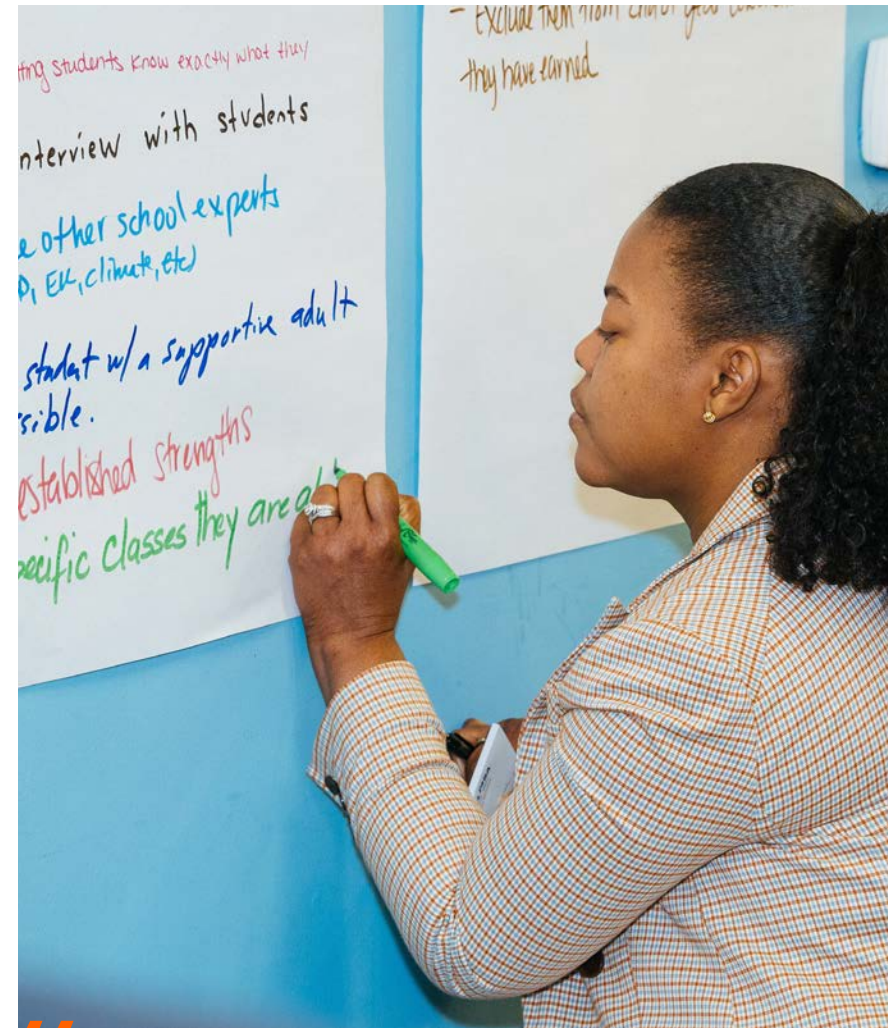 ting students know exactly what they
nterview with students
e other school experts
D, EK, climate, etc)
student w/ a supportive adult
sible.
established strengths
pecific classes they are a
- Exclude them from end of year
they have earned